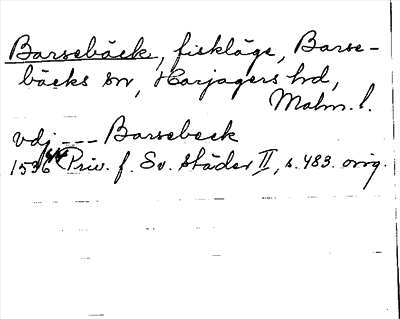 Barsebäck, fiskläge, Barse-
bäcks sn, Harjagers hd,
Malm. l.
vdj --- Barsebeck
1536 Priv. f. Sv. städer II, s. 483. orig.